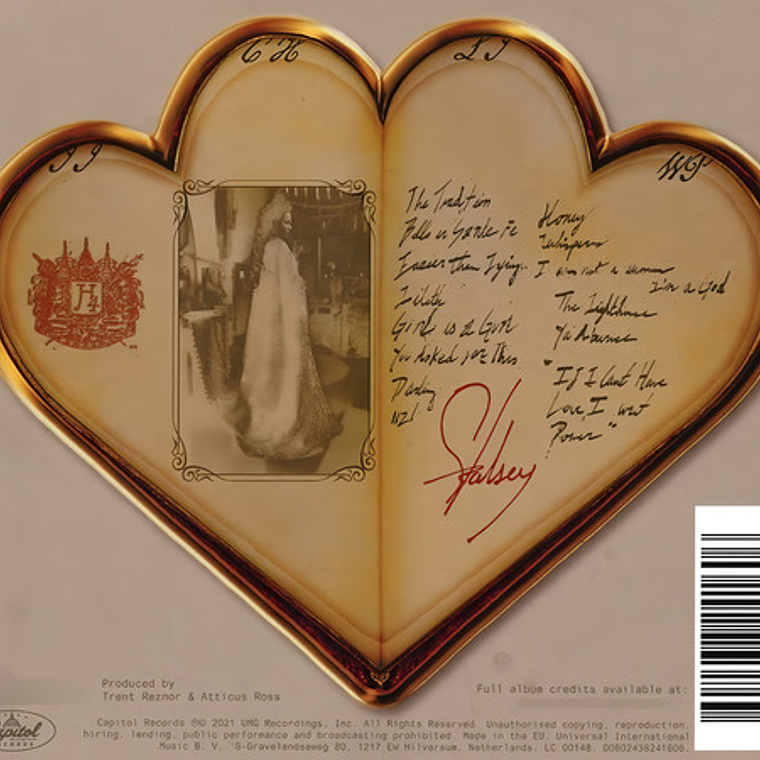 CH
LJ
JJ
WP
H4
The Tradition
Bells in Santa Fe
Easier than Lying
Lilith
Girl is a Gun
You Asked for This
Darling
1121
Honey
Whispers
I am not a woman
I'm a God
The Lighthouse
Ya'aburnee
"If I Can't Have
Love, I want
Power"
Halsey
Produced by
Trent Reznor & Atticus Ross
Full album credits available at:
Capitol
RECORDS
Capitol Records ℗© 2021 UMG Recordings, Inc. All Rights Reserved. Unauthorised copying, reproduction,
hiring, lending, public performance and broadcasting prohibited. Made in the EU. Universal International
Music B. V. 'S-Gravelandseweg 80, 1217 EW Hilversum, Netherlands. LC 00148. 00602438241606.